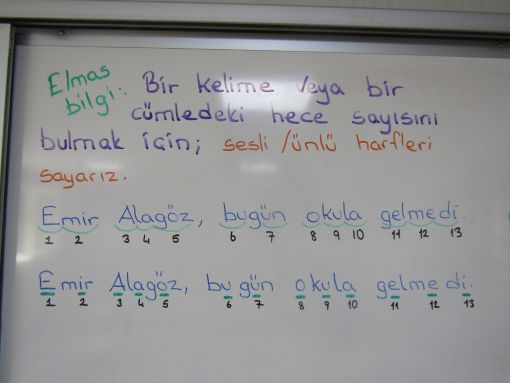 Elmas
bilgi:
Bir kelime veya bir
cümledeki hece sayısını
bulmak için; sesli /ünlü harfleri
sayarız.
Emir Alagöz, bugün okula gelmedi.
1 2 3 4 5 6 7 8 9 10 11 12 13
Emir Alagöz, bugün okula gelmedi.
1 2 3 4 5 6 7 8 9 10 11 12 13